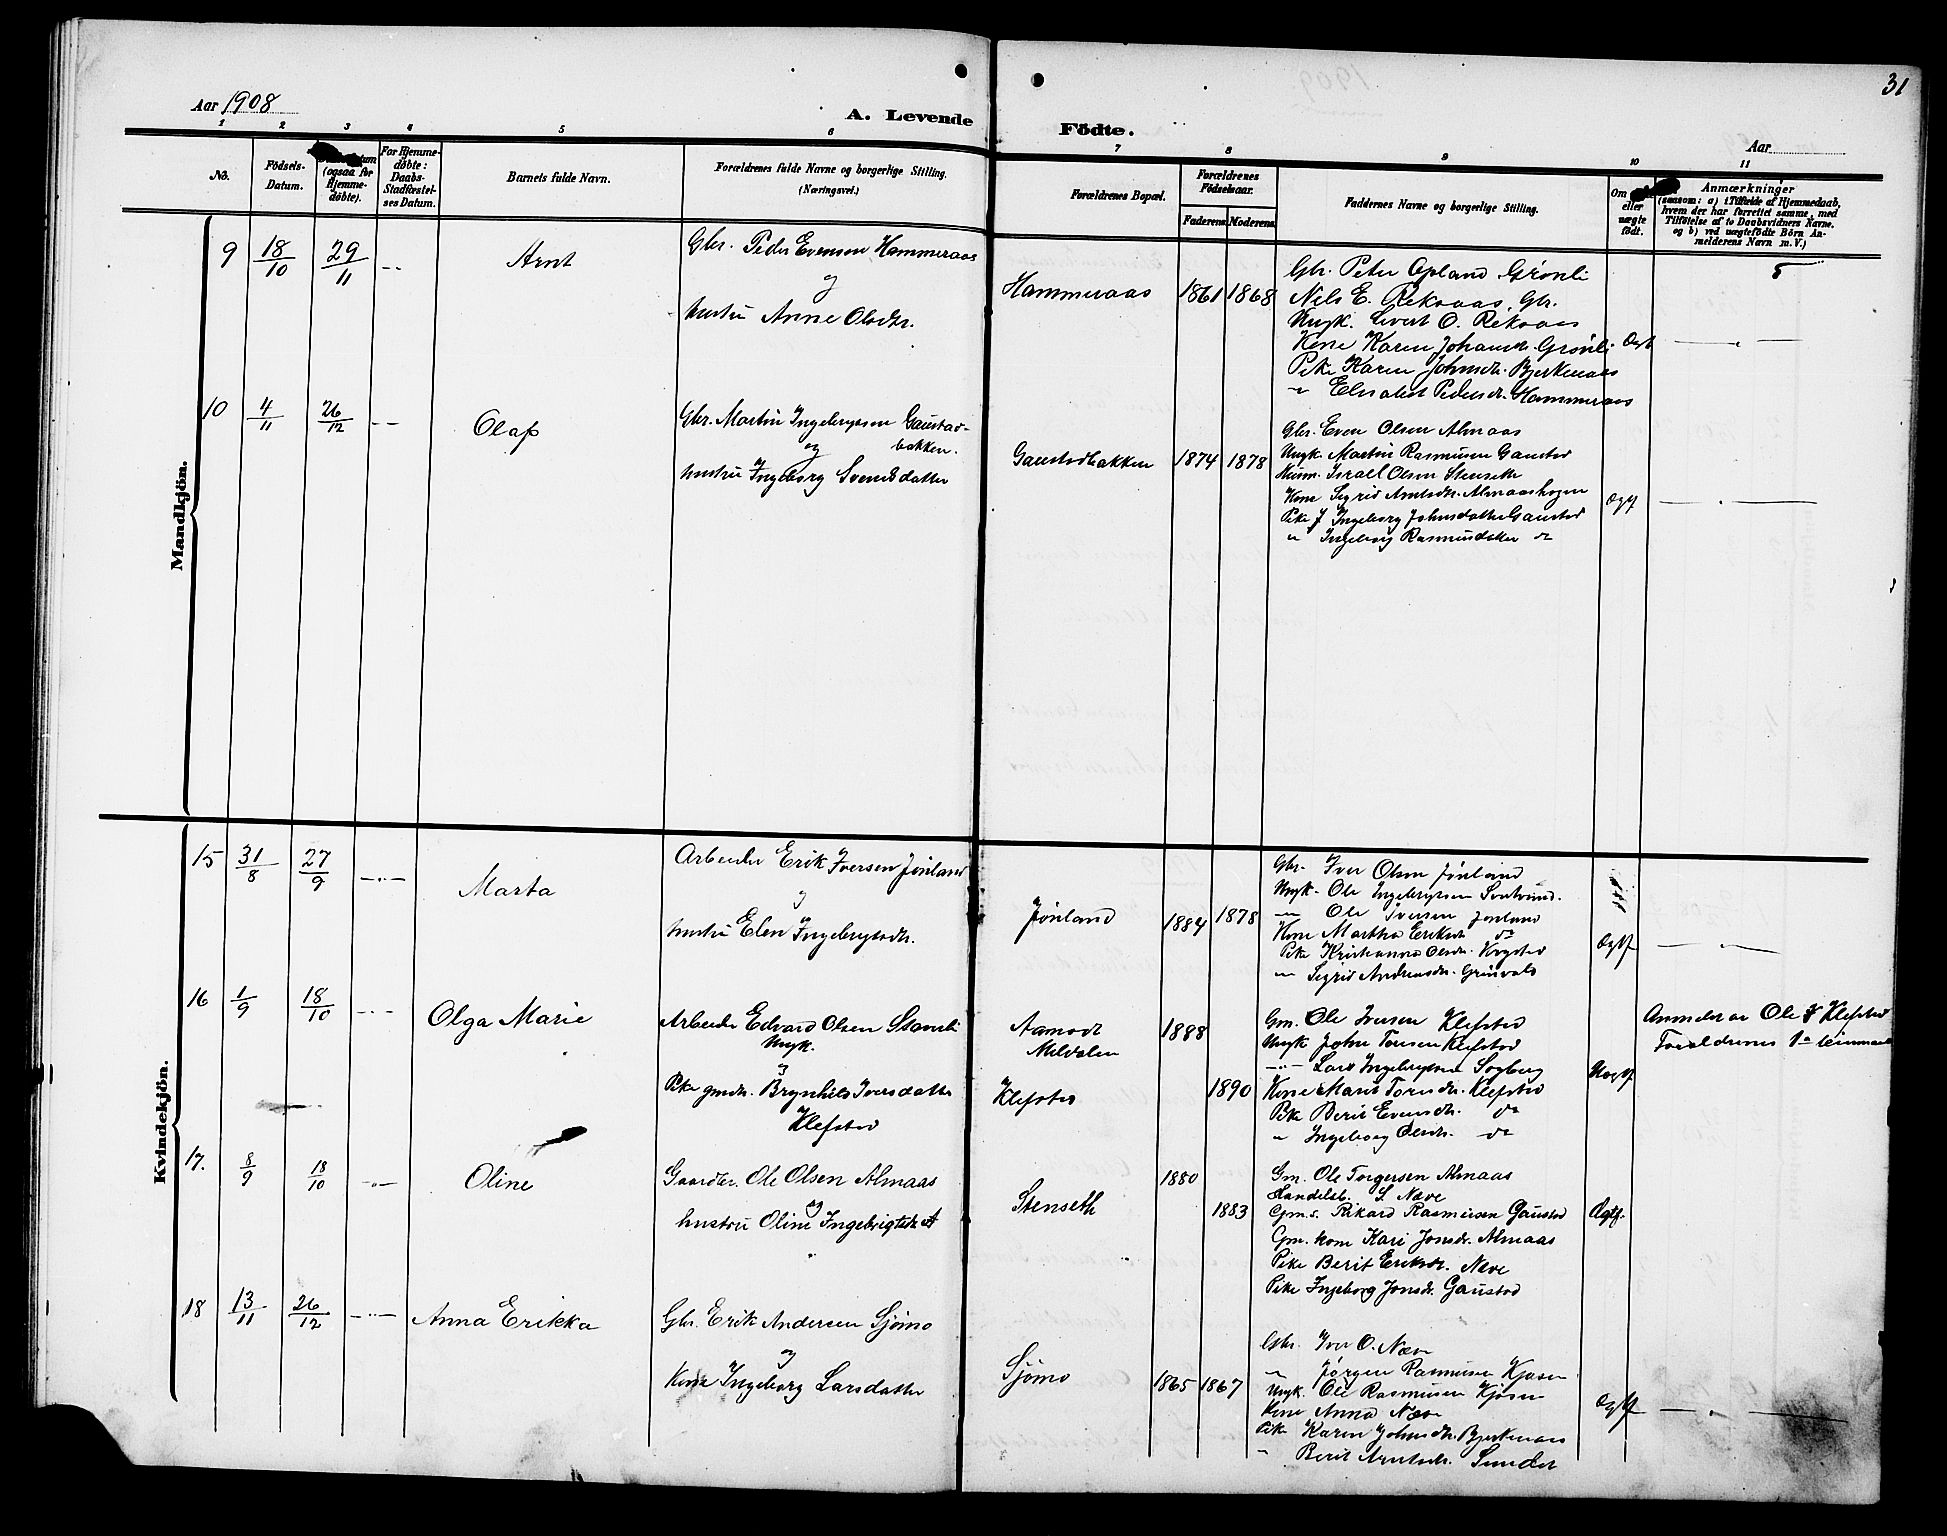 31
Aar 1908
A. Levende Födte.
Aar
1 2 3 4 5 6 7 8 9 10 11
No.
Födsels-Datum.
(ogsaa for Hjemme-döbte).
For Hjemme-döbte: Daabs-Stadfæstel-ses Datum.
Barnets fulde Navn.
Forældrenes fulde Navne og borgerlige Stilling.
(Næringsvei.)
Forældrenes Bopæl.
Forældrenes Födselsaar.
Faderens Moderens
Faddernes Navne og borgerlige Stilling.
Om eller uægte födt.
Anmærkninger
(saasom: a) i Tilfælde af Hjemmedaab,
hvem der har forrettet samme, med
Tilföielse af to Daabsvidners Navne.
og b) ved uægtefödte Börn An-
melderens Navn m. V.)
Mandkjön.
9 18/10 29/11 -"-
Arnt
Gbr. Peder Evensen Hammeraas
og
hustru Anne Olsdtr.
Hammeraas 1861 1868
Gbr. Peter Opland Grönli
Nils E. Rekaaas Gbr.
Ungk. Sivert O. Rekaaas
Kone Karen Johansdr. Grönli
Pike Karen Johnsdr. Bjerkenaas
" Elisabet Pedersdr. Hammeraas
Ægt
5
10 4/11 26/12 -"-
Olaf
Gbr. Martin Ingebrigtsen Gaustad-
bakken.
og
hustru Ingeborg Svendsdatter
Gaustadbakken 1874 1878
Gbr. Even Olsen Almaas
Ungk. Martin Rasmussen Gaustad
Israel Olsen Stenseth
Kone Sigrid Arntsdr. Almaashogen
Pike J Ingeborg Johnsdatter Gaustad
" Ingeborg Rasmusdatter do
Ægtf
Kvindekjön.
15 31/8 27/9 -"-
Marta
Arbeider Erik Iversen Jönland
og
hustru Elen Ingebrigtsdr.
Jönland 1884 1878
Gbr. Iver Olsen Jönland
Ungk. Ole Ingebrigtsen
" Ole Iversen Jönland
Kone Martha Eriksdr. do
Pike Kristianna Olsdr.
" Sigrid Andreasdr. Grönvold
Ægtf
16 1/9 18/10 -"-
Olga Marie
Arbeider Edvard Olsen
Ungk.
og
Pike gmdr. Brynhild Iversdatter
Klefstad
Aamodt
Meldalen
Klefstad
1888
1890
Gm. Ole Iversen Klefstad
Ungk John Toresen Klefstad
-"- Lars Ingebrigtsen
Kone Marit Toresdr. Klefstad
Pike Berit Evensdr. do
" Ingeborg Olsdr. do
Uægtf
Anmelder Ole Klefstad
Forældrenes 1ste
17. 8/9 18/10 -"-
Oline
Gaardbr. Ole Olsen Almaas
og
hustru Oline Ingebrigtsdr. A
Stenseth
1880
1883
Gm. Ole Torgersen Almaas
Handelsb. S. Næve
Gm. s. Rikard Rasmussen Gaustad
Gm. kone Kari Jonsdr. Almaas
Pike Berit Eriksdr. Næve
Pike Ingeborg Jonsdr. Gaustad
Ægtf.
18 13/11 26/12 -"-
Anna Erikka
Gbr. Erik Andersen Sjömo
og
Kone Ingeborg Larsdatter
Sjömo 1865 1867
Gbr. Iver O. Næve
" Jörgen Rasmussen Kjösen
Ungk. Ole Rasmussen Kjösen
Kone Anna Næve
Pike Karen Johnsdr. Bjerkenaas
" Berit Arntsdr. Sundet
Ægtf